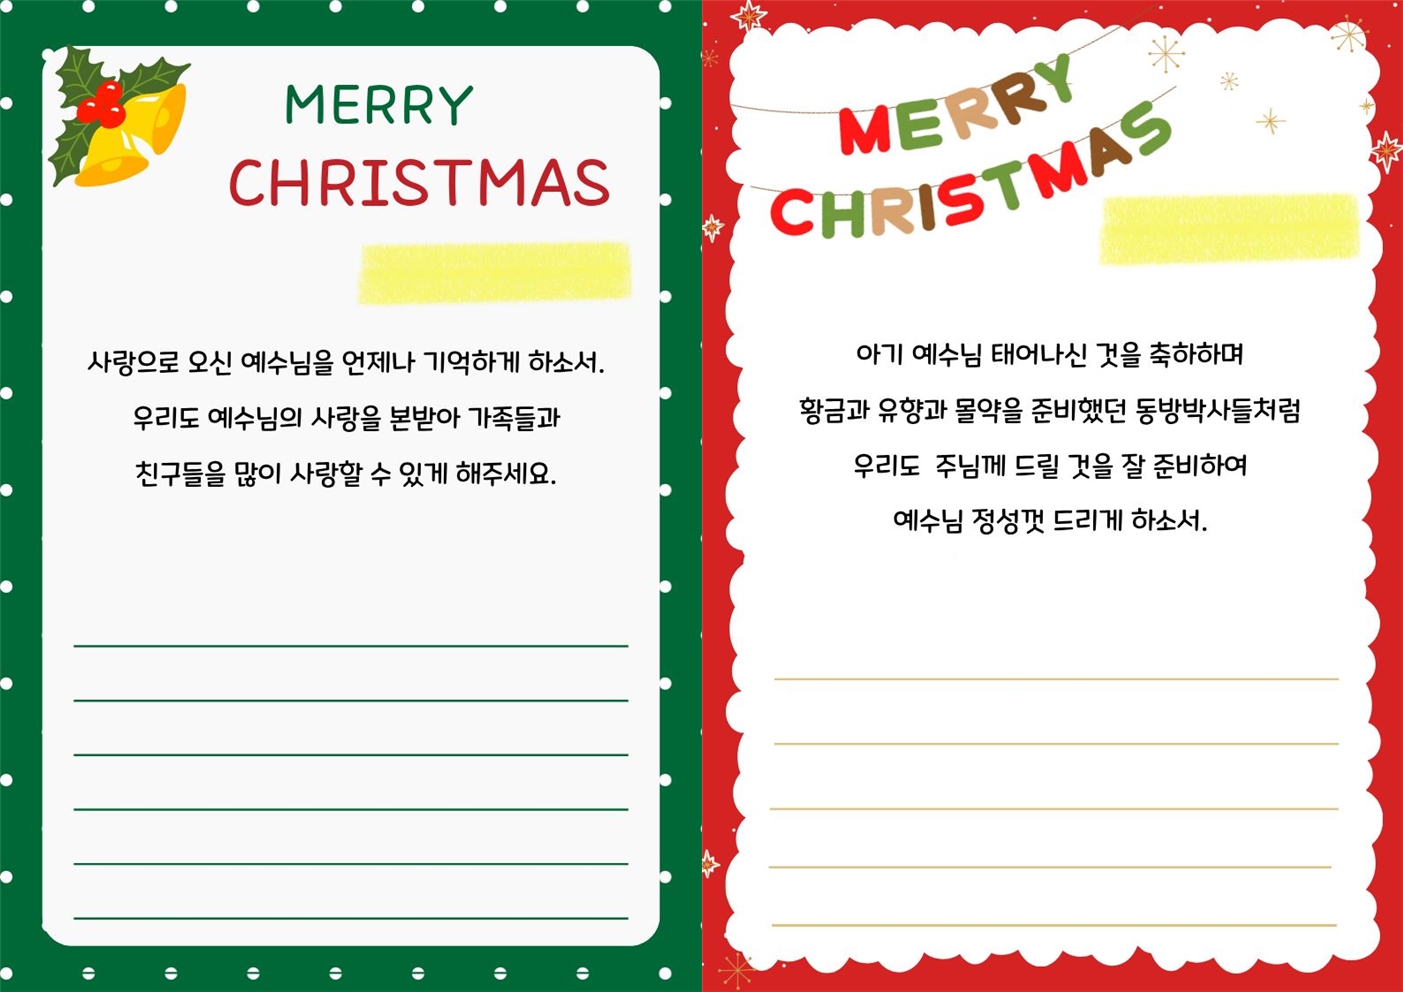 MERRY
CHRISTMAS
사랑으로 오신 예수님을 언제나 기억하게 하소서.
우리도 예수님의 사랑을 본받아 가족들과
친구들을 많이 사랑할 수 있게 해주세요.
MERRY
CHRISTMAS
아기 예수님 태어나신 것을 축하하며
황금과 유향과 몰약을 준비했던 동방박사들처럼
우리도 주님께 드릴 것을 잘 준비하여
예수님 정성껏 드리게 하소서.